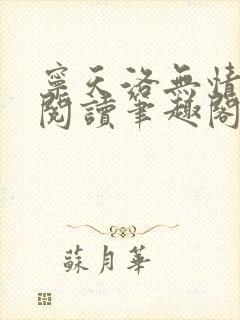 寧天洛無情
閱讀筆趣閣
蘇月華